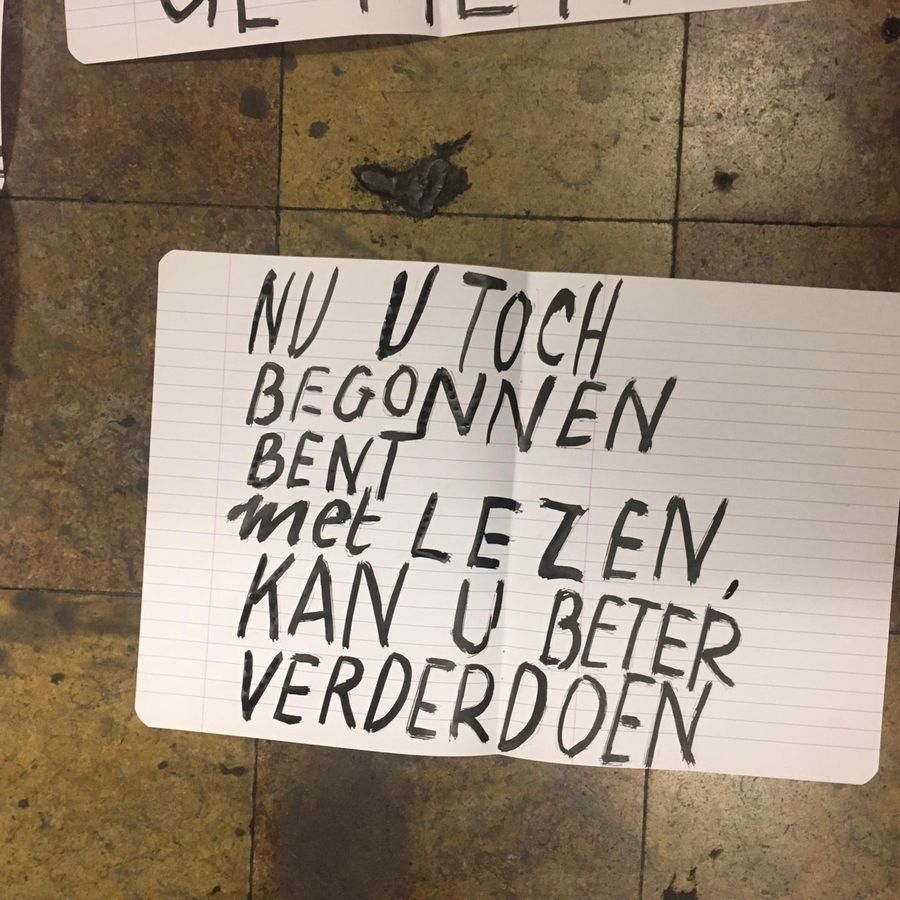 NU U TOCH
BEGONNEN
BENT
met LEZEN,
KAN U BETER
VERDERDOEN